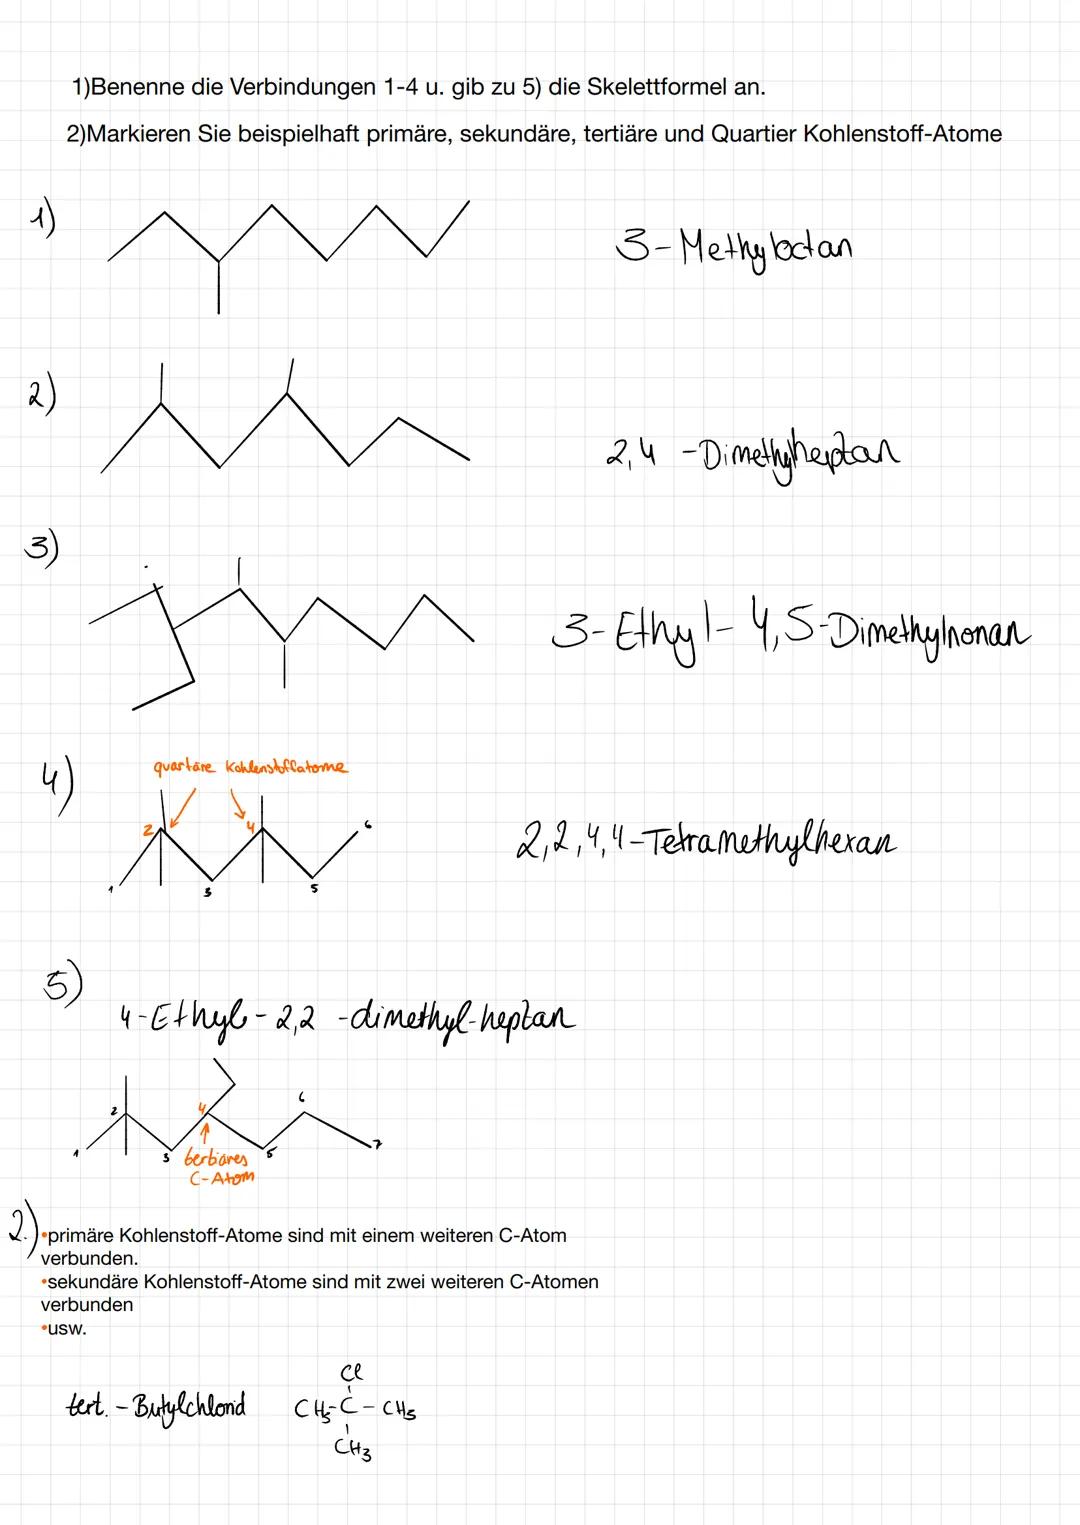 1)Benenne die Verbindungen 1-4 u. gib zu 5) die Skelettformel an.
2)Markieren Sie beispielhaft primäre, sekundäre, tertiäre und Quartier Kohlenstoff-Atome
1)
3-Methyloctan
2)
2,4 -Dimethylheptan
3)
3-Ethyl-4,5-Dimethylnonan
4)
quartäre Kohlenstoffatome
2 4 6
1 3 5
2,2,4,4-Tetramethylhexan
5)
4-Ethyl-2,2 -dimethyl-heptan
2 4 6
1 3 5 7
terbiäres
C-Atom
2.)
•primäre Kohlenstoff-Atome sind mit einem weiteren C-Atom
verbunden.
•sekundäre Kohlenstoff-Atome sind mit zwei weiteren C-Atomen
verbunden
•usw.
Cl
tert.-Butylchlorid CH3-C-CH3
CH3